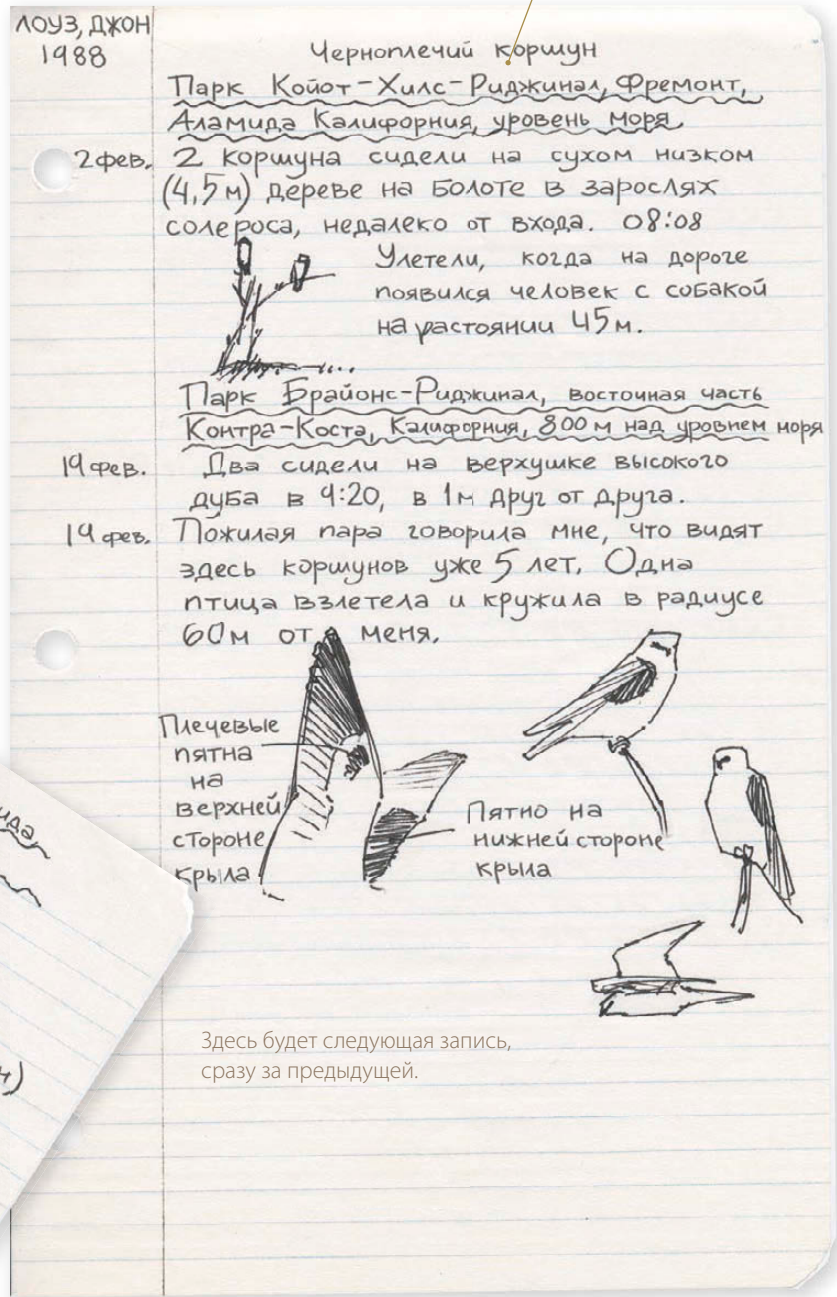 ЛОУЗ, ДЖОН
1988
Черноплечий коршун
Парк Койот-Хилс-Риджинал, Фремонт,
Аламида Калифорния, уровень моря
2 фев. 2 коршуна сидели на сухом низком
(4,5 м) дереве на болоте в зарослях
солероса, недалеко от входа. 08:08
Улетели, когда на дороге
появился человек с собакой
на растоянии 45 м.
Парк Брайонс-Риджинал, восточная часть
Контра-Коста, Калифорния, 800 м над уровнем моря
19 фев. Два сидели на верхушке высокого
дуба в 9:20, в 1м друг от друга.
19 фев. Пожилая пара говорила мне, что видят
здесь коршунов уже 5 лет. Одна
птица взлетела и кружила в радиусе
60 м от меня.
Плечевые
пятна
на
верхней
стороне
крыла
Пятно на
нижней стороне
крыла
Здесь будет следующая запись,
сразу за предыдущей.